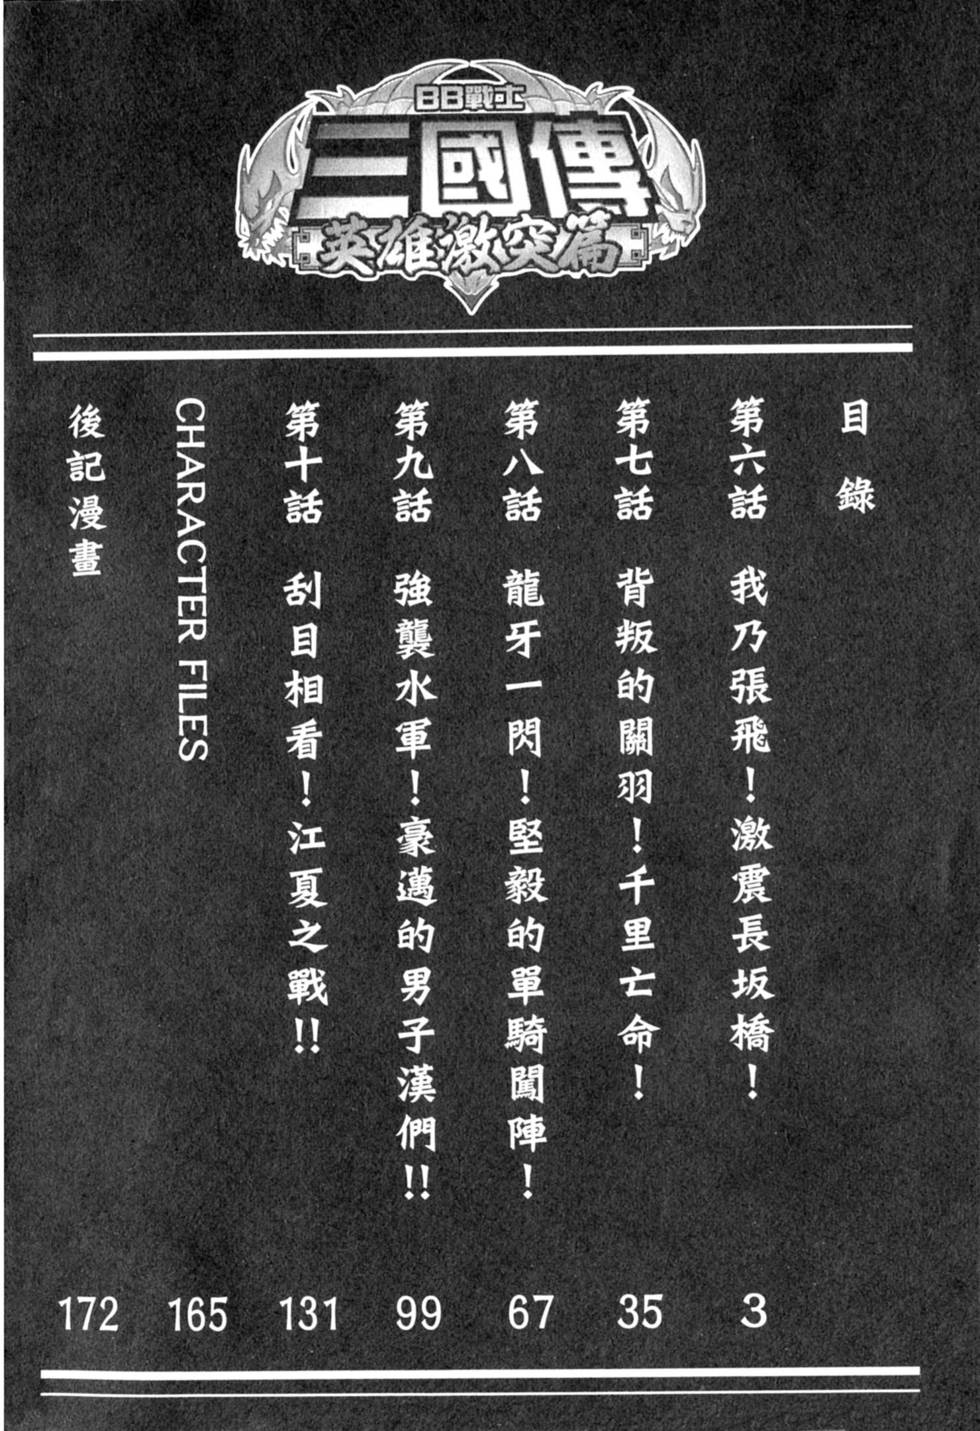 BB戰士
三國傳
英雄激突篇
目錄
第六話 我乃張飛！激震長坂橋！ 3
第七話 背叛的關羽！千里亡命！ 35
第八話 龍牙一閃！堅毅的單騎闖陣！ 67
第九話 強襲水軍！豪邁的男子漢們!! 99
第十話 刮目相看！江夏之戰!! 131
CHARACTER FILES 165
後記漫畫 172